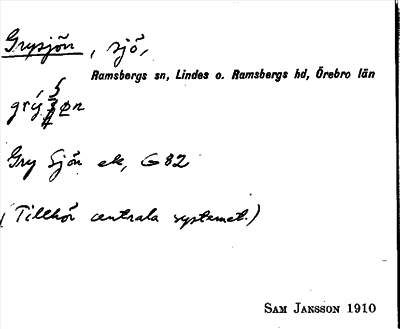 Grysjön, sjö,
Ramsbergs sn, Lindes o. Ramsbergs hd, Örebro län
Gry Sjön ek, G 82
(Tillhör centrala systemet.)
SAM JANSSON 1910